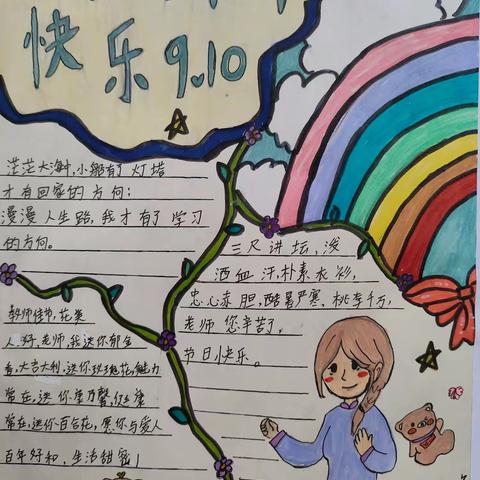 快乐 9.10
茫茫大海,小船有了灯塔
才有回家的方向;
漫漫人生路,我才有了学习
的方向。
三尺讲坛,泼
洒血汗,朴素衣衫,
忠心赤胆,酷暑严寒,桃李千万,
老师您辛苦了,
节日快乐。
教师佳节,花美
人好,老师,我送你郁金
香,大吉大利,送你玫瑰花,魅力
常在,送你康乃馨,健康
常在,送你百合花,愿你与爱人
百年好和,生活甜蜜!